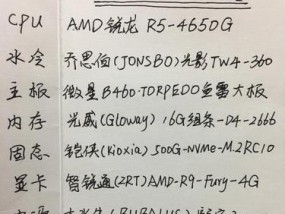 CPU AMD锐龙 R5-4650G
水冷 乔思伯(JONSBO)光影TW4-360
主板 微星B460-TORPEDO鱼雷大板
内存 光威(Gloway)16G组条-D4-2666
固态 铠侠(Kioxia)500G-NVMe-M.2RC10
显卡 智锐通(ZRT)AMD-R9-Fury-4G